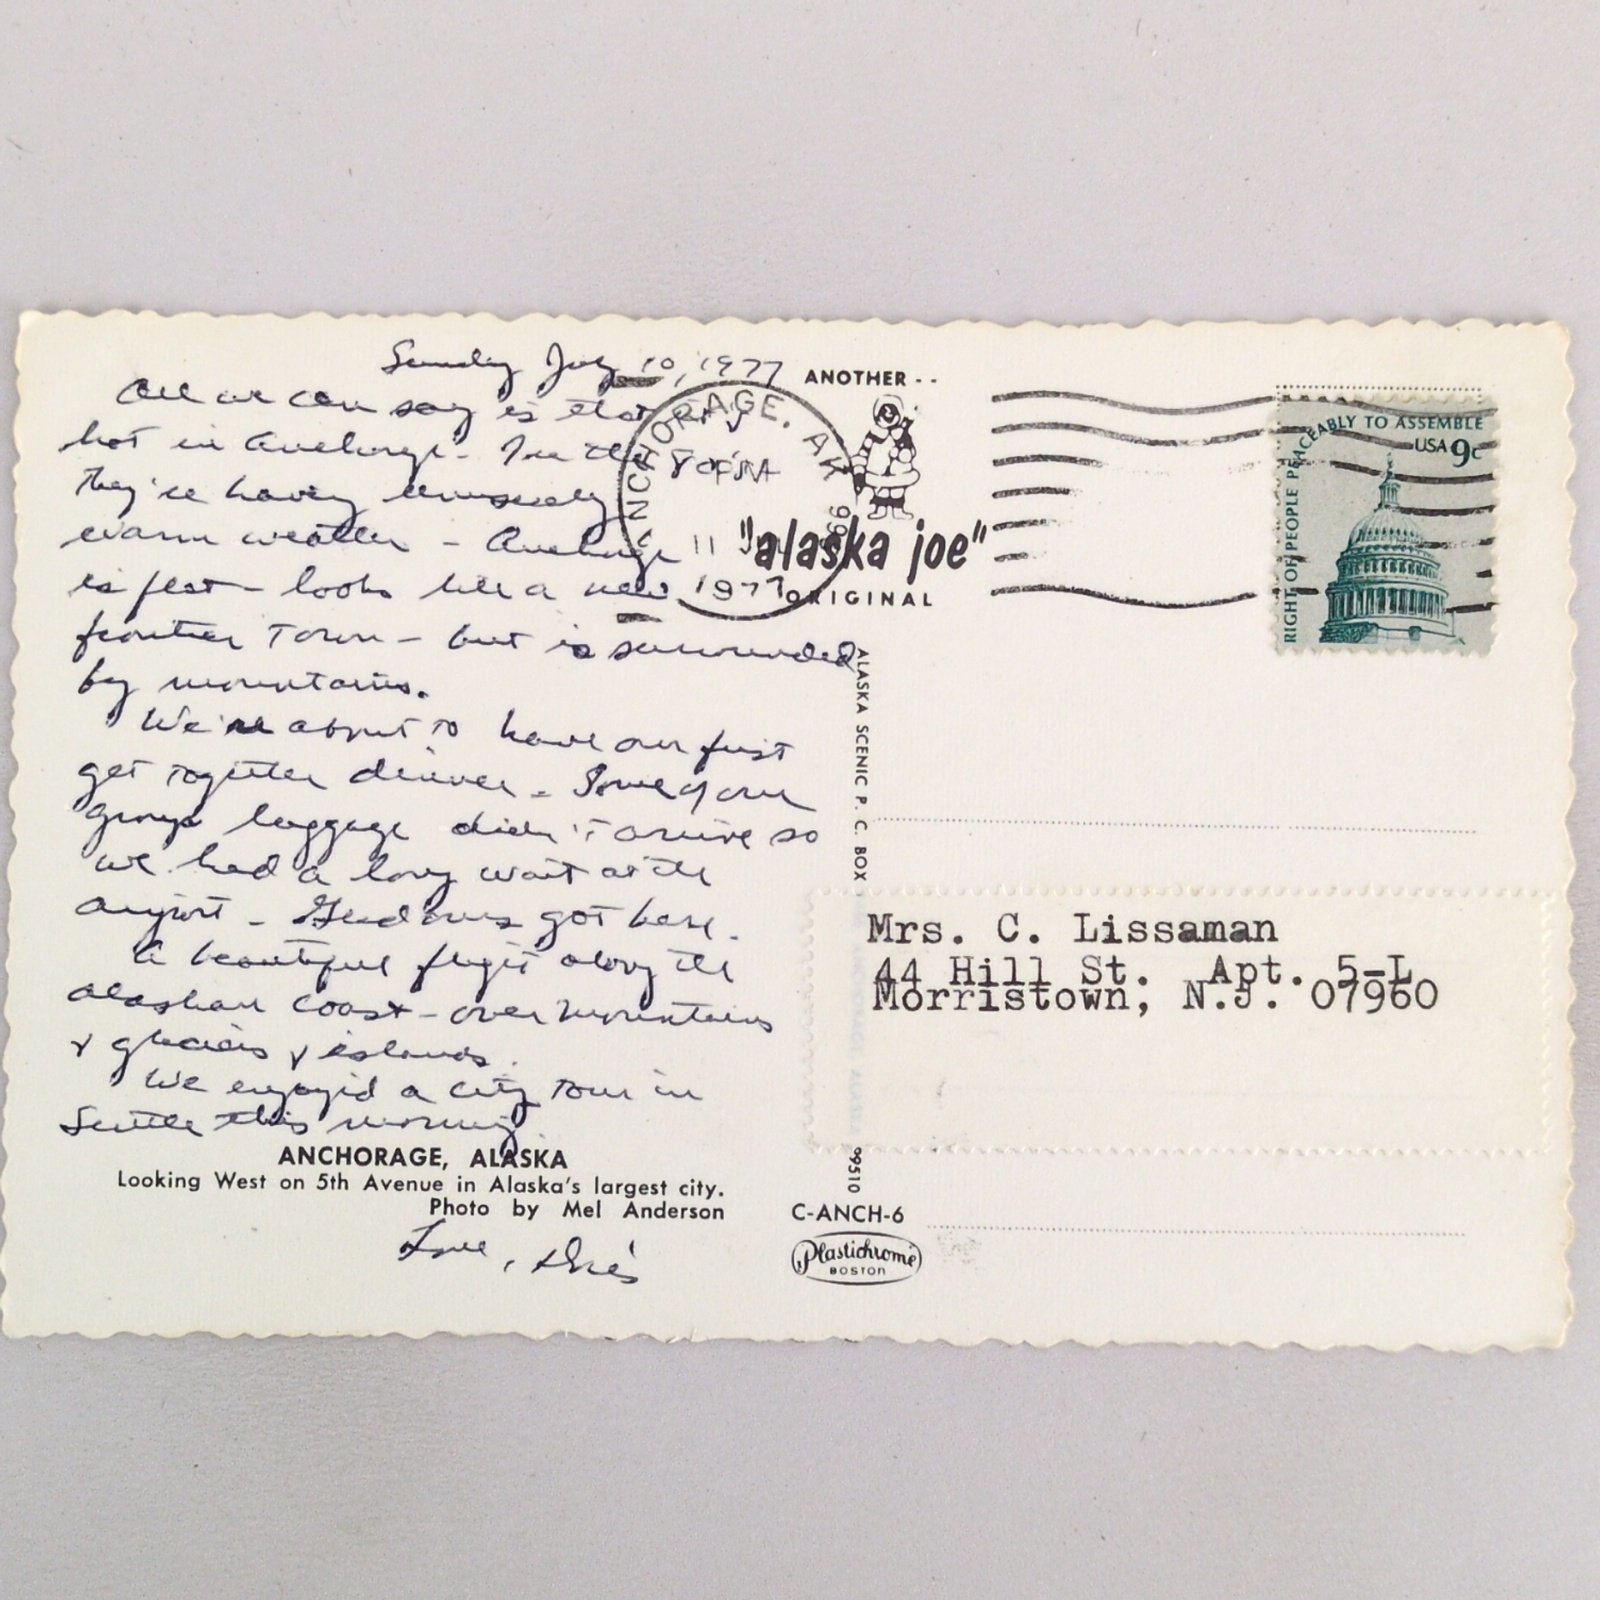 Sunday July 10, 1977
All we can say is that it's
hot in Anchorage. In the 80's
They're having unusually
warm weather - Anchorage
is flat - looks like a new
frontier town - but is surrounded
by mountains.
We're about to have our first
get together dinner. Some of our
group luggage didn't arrive so
we had a long wait at the
airport - Glad ours got here.
A beautiful flight along the
Alaskan coast - over mountains
& glaciers & islands.
We enjoyed a city tour in
Seattle this morning
ANCHORAGE, ALASKA
Looking West on 5th Avenue in Alaska's largest city.
Photo by Mel Anderson
Love,
ANOTHER - -
"alaska joe"
ORIGINAL
ANCHORAGE, AK
PM
11
1977
RIGHT OF PEOPLE PEACEABLY TO ASSEMBLE
USA 9c
ALASKA SCENIC P. C. BOX
99510
Mrs. C. Lissaman
44 Hill St. Apt. 5-L
Morristown, N.J. 07960
C-ANCH-6
Plastichrome
BOSTON